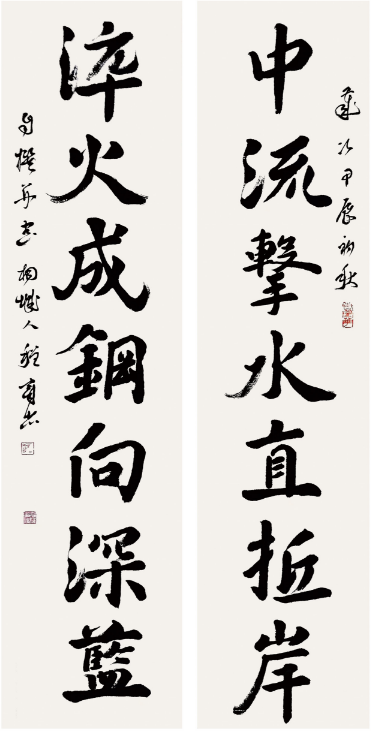 歲次甲辰初秋
中流擊水直抵岸
淬火成鋼向深藍
自撰并書 桐城人程